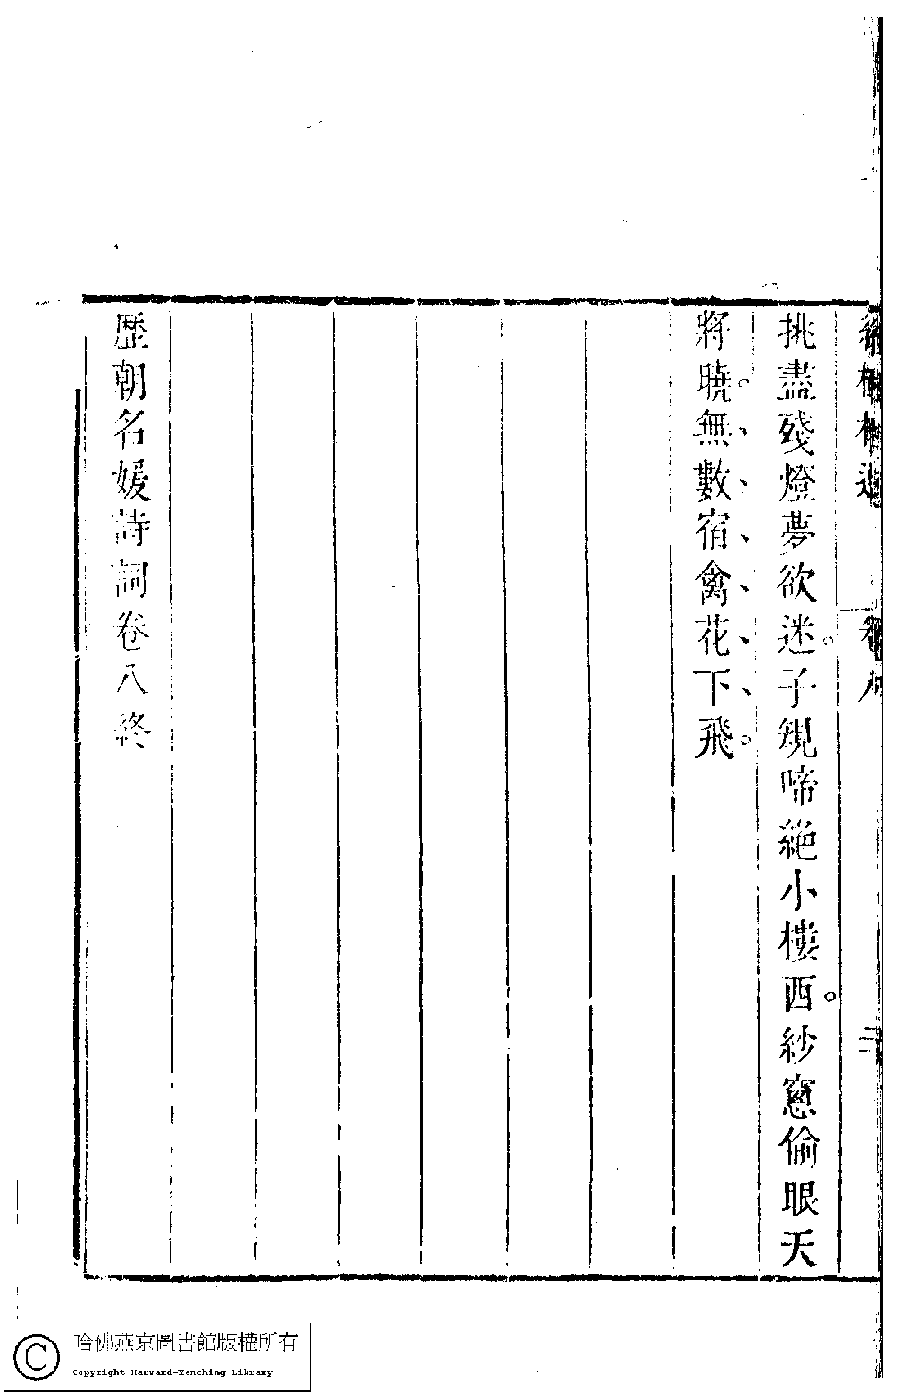 卷八
挑盡殘燈夢欲迷。子規啼絶小樓西。紗窻偷眼天
將曉。無、數、宿、禽、花、下、飛。
歷朝名媛詩詞卷八終
哈佛燕京圖書館版權所有
Copyright Harvard-Yenching Library